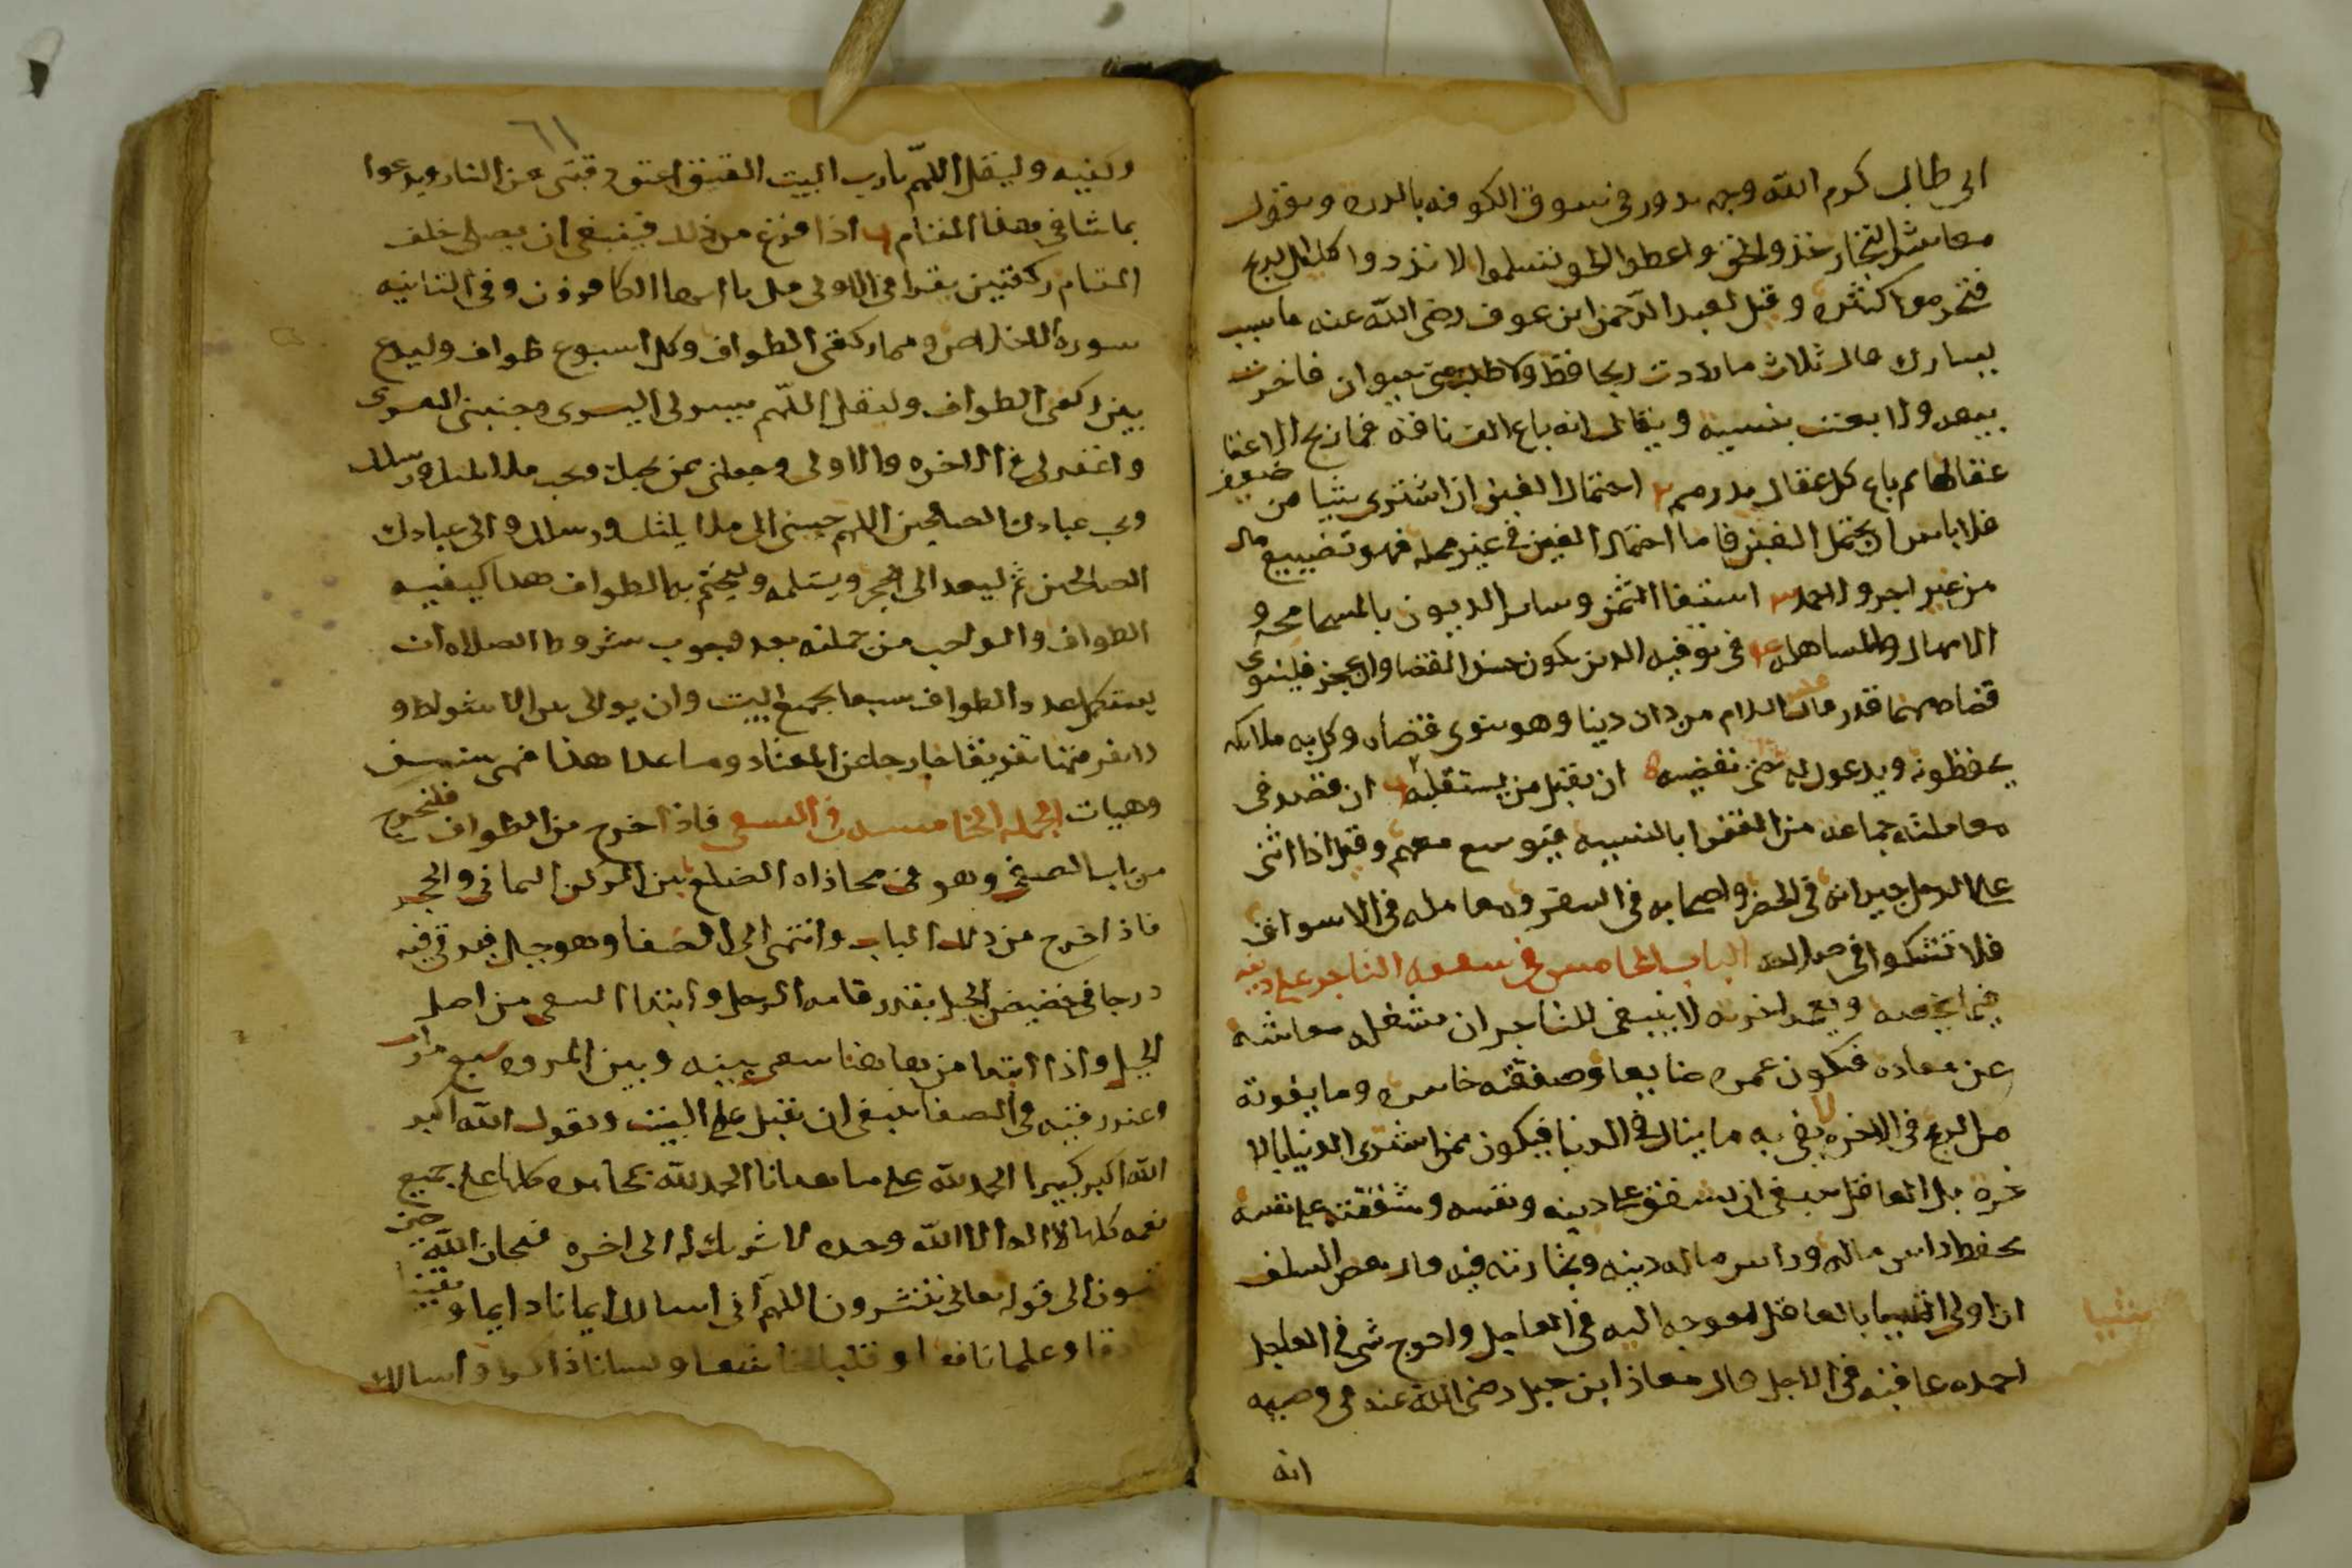 ابى طالب كرم الله وجهه يدور فى سوق الكوفه بالدره ويقول
معاشر التجار خذو الحق واعطوا الحق تسلموا لا تردوا قليل الربح
فتحرموا كثيره وقيل لعبد الرحمن ابن عوف رضى الله عنه ما سبب
يسارك قال ثلاث ما رددت ربحا قط ولا طلب منى حيوان فاخرت
بيعه ولا بعت بنسيه ويقال انه باع الف ناقه فما ربح الا عقا
عقالها ثم باع كل عقال بدرهم ٢ احتمال الغبن ان اشترى شيا من ضعيف
فلا باس ان يحتمل الغبن فاما احتمال الغبن فى غير محله فهو تضييع مال
من غير اجر ولا حمد ٣ استيفا الثمن وساير الديون بالمسامحه و
الامهال والمساهله ٤ فى توفيه الدين يكون حسن القضا وان عجز فلينوى
قضاه مهما قدر قال عليه السلام من دان دينا وهو ينوى قضاه وكل به ملايكه
يحفظونه ويدعون له حتى يقضيه ٥ ان يقبل من يستقيله ٦ ان يقصد فى
معاملته جماعه من الفقرا بالنسيه فيتوسع معهم وقيل اذا اثنى
على الرجل جيرانه فى الحضر واصحابه فى السفر ومعامله فى الاسواق
فلا تشكوا فى صلاحه الباب الخامس فى شفقه التاجر على دينه
فيما يخصه ويعم اخرته لا ينبغى للتاجر ان يشغله معاشه
عن معاده فيكون عمره ضايعا وصفقته خاسره وما يفوته
من الربح فى الاخره لا يفى به ما ينال فى الدنيا فيكون ممن اشترى الدنيا بالا
خره بل العاقل ينبغى ان يشفق على دينه ونفسه وشفقته على نفسه
بحفظ راس ماله وراس ماله دينه وتجارته فيه قال بعض السلف
ان اولى الاشيا بالعاقل احوجه اليه فى العاجل واحوج شى فى العاجل
شيا
احمده عاقبه فى الاجل قال معاذ ابن جبل رضى الله عنه فى وصيته
انه
٦١
وليقل اللهم يا رب البيت العتيق اعتق رقبتى من النار ويدعوا
بما شا فى هذا المقام ٦ اذا فرغ من ذلك فينبغى ان يصلى خلف
المقام ركعتين يقرا فى الاولى قل يا ايها الكافرون وفى الثانيه
سوره الاخلاص وهما ركعتى الطواف وكل اسبوع طواف وليدع
بين ركعتى الطواف وليقل اللهم يسر لى اليسرى وجنبنى العسرى
واغفر لى فى الاخره والاولى وجعلنى ممن يحبك ويحب ملايكتك ورسلك
ويحب عبادك الصالحين اللهم حببنى الى ملايكتك ورسلك والى عبادك
الصالحين ثم ليعد الى الحجر ويستلمه وليختم به الطواف هذا كيفيه
الطواف والواجب من جملته بعد وجوب شروط الصلاه ان
يستكمل عدد الطواف سبعا بجميع البيت وان يوالى بين الاشواط و
لا يفرقهما تفريقا خارجا عن المعتاد وما عدا هذا فهى سنن
وهيات الجمله الخامسه فى السعى فاذا خرج من الطواف فليخرج
من باب الصفى وهو فى محاذاه الضلع بين الركن اليمانى والحجر
فاذا خرج من ذلك الباب وانتهى الى الصفا وهو جبل فيرقى فيه
درجا فى حضيض الجبل بقدر قامه الرجل وابتدا السعى من اصل
الجبل واذا ابتدا من هاهنا سعى بينه وبين المروه سبع مرات
وعند رقيه فى الصفا ينبغى ان يقبل على البيت ويقول الله اكبر
الله اكبر كبيرا الحمد لله على ما هدانا الحمد لله بمحامده كلها على جميع
نعمه كلها لا اله الا الله وحده لا شريك له الى اخره فسبحان الله حين
تمسون الى قوله تعالى تنتشرون اللهم انى اسالك ايمانا دايما و يقينا
صادقا وعلما نافعا وقلبا خاشعا ولسانا ذاكرا واسالك